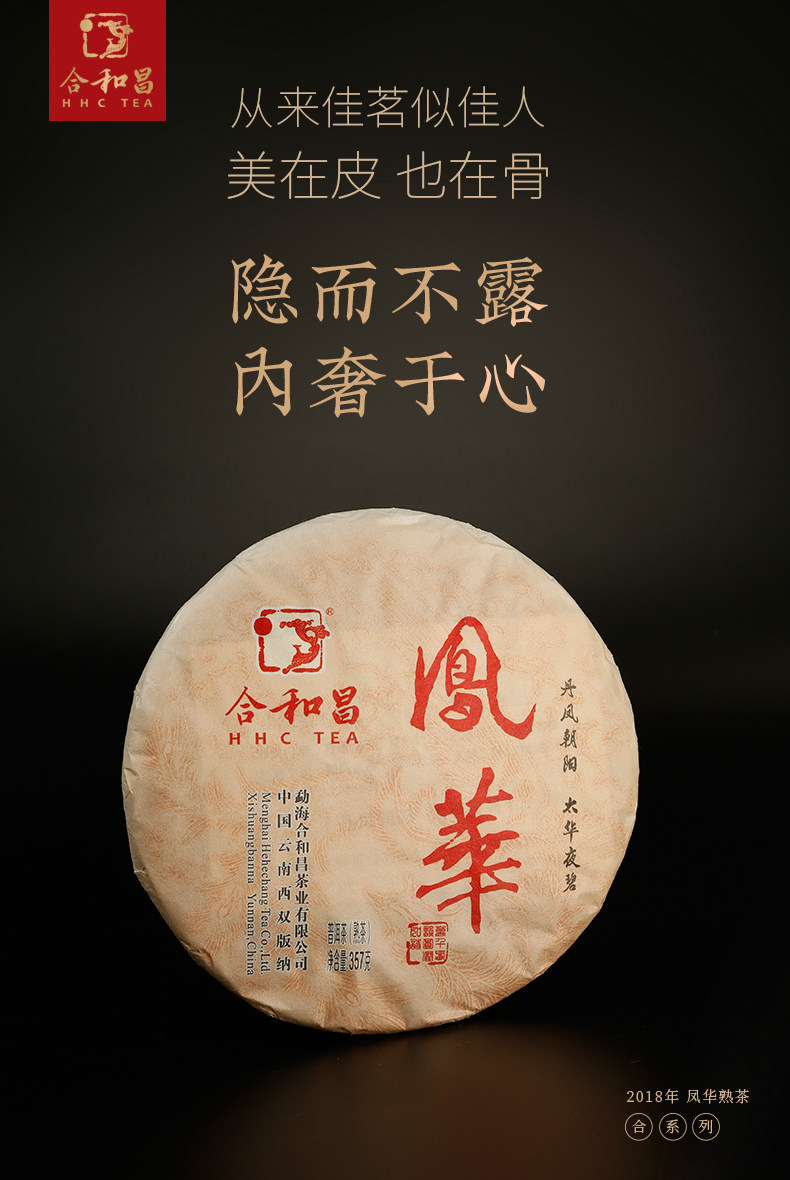 合和昌
HHC TEA
从来佳茗似佳人
美在皮 也在骨
隐而不露
内奢于心
®
合和昌
HHC TEA
鳳華
丹凤朝阳 太华夜碧
勐海合和昌茶业有限公司
中国云南西双版纳
Menghai Hehechang Tea Co.,Ltd
Xishuangbanna Yunnan,China
普洱茶(熟茶)
净含量:357克
2018年 凤华熟茶
合系列